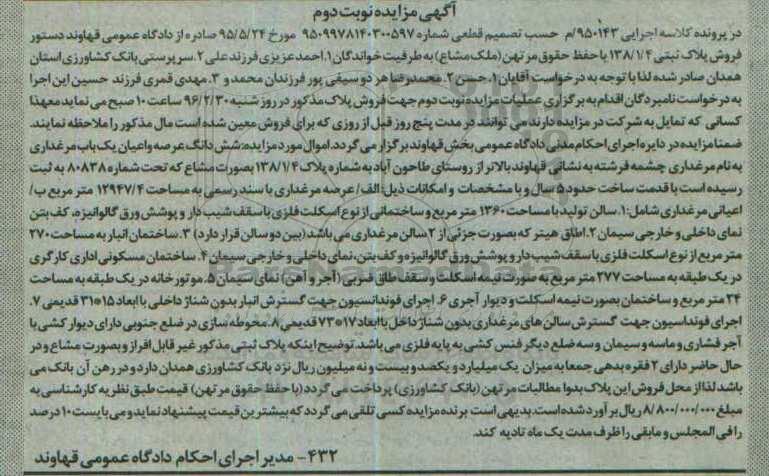 آگهی مزایده نوبت دوم
در پرونده کلاسه اجرایی ۹۵۰۱۴۳/م حسب تصمیم قطعی شماره ۹۵۰۹۹۷۸۱۴۰۳۰۰۵۹۷ مورخ ۹۵/۵/۲۴ صادره از دادگاه عمومی قهاوند دستور
فروش پلاک ثبتی ۱۳۸/۱/۴ با حفظ حقوق مرتهن (ملک مشاع) به طرفیت خواندگان ۱. احمد عزیزی فرزند علی ۲. سرپرستی بانک کشاورزی استان
همدان صادر شده لذا با توجه به درخواست آقایان ۱. حسن ۲. محمدرضا هر دو سیفی پور فرزندان محمد و ۳. مهدی قمری فرزند حسین این اجرا
به درخواست نامبردگان اقدام به برگزاری عملیات مزایده نوبت دوم جهت فروش پلاک مذکور در روز شنبه ۹۶/۲/۳۰ ساعت ۱۰ صبح می نماید معهذا
کسانی که تمایل به شرکت در مزایده دارند می توانند در مدت پنج روز قبل از روزی که برای فروش معین شده است مال مذکور را ملاحظه نمایند.
ضمنا مزایده در دایره اجرای احکام مدنی دادگاه عمومی بخش قهاوند برگزار می گردد. اموال مورد مزایده: شش دانگ عرصه و اعیان یک باب مرغداری
به نام مرغداری چشمه فرشته به نشانی قهاوند بالاتر از روستای طاحون آباد به شماره پلاک ۱۳۸/۱/۴ بصورت مشاع که تحت شماره ۸۰۸۳۸ به ثبت
رسیده است با قدمت ساخت حدود ۵ سال و با مشخصات و امکانات ذیل: الف/ عرصه مرغداری با سند رسمی به مساحت ۱۲۹۴۷/۴ متر مربع ب/
اعیانی مرغداری شامل: ۱. سالن تولید با مساحت ۱۳۶۰ متر مربع و ساختمانی از نوع اسکلت فلزی با سقف شیب دار و پوشش ورق گالوانیزه، کف بتن
نمای داخلی و خارجی سیمان ۲. اطاق هیتر که بصورت جزئی از ۲ سالن مرغداری می باشد (بین دو سالن قرار دارد) ۳. ساختمان انبار به مساحت ۲۷۰
متر مربع از نوع اسکلت فلزی با سقف شیب دار و پوشش ورق گالوانیزه و کف بتن، نمای داخلی و خارجی سیمان ۴. ساختمان مسکونی اداری کارگری
در یک طبقه به مساحت ۲۷۷ متر مربع به صورت نیمه اسکلت و سقف طاق ضربی (آجر و آهن) نمای سیمان ۵. موتورخانه در یک طبقه به مساحت
۲۴ متر مربع و ساختمان بصورت نیمه اسکلت و دیوار آجری ۶. اجرای فونداسیون جهت گسترش انبار بدون شناژ داخلی با ابعاد ۱۵*۳۱ قدیمی ۷.
اجرای فونداسیون جهت گسترش سالن های مرغداری بدون شناژ داخل با ابعاد ۱۷*۷۳ قدیمی ۸. محوطه سازی در ضلع جنوبی دارای دیوار کشی با
آجر فشاری و ماسه و سیمان و سه ضلع دیگر فنس کشی به پایه فلزی می باشد. توضیح اینکه پلاک ثبتی مذکور غیر قابل افراز و بصورت مشاع و در
حال حاضر دارای ۲ فقره بدهی جمعا به میزان یک میلیارد و یکصد و بیست و نه میلیون ریال نزد بانک کشاورزی همدان دارد و در رهن آن بانک می
باشد لذا از محل فروش این پلاک بدوا مطالبات مرتهن (بانک کشاورزی) پرداخت می گردد (با حفظ حقوق مرتهن) قیمت طبق نظریه کارشناسی به
مبلغ ۸/۸۰۰/۰۰۰/۰۰۰ ریال برآورد شده است. بدیهی است برنده مزایده کسی تلقی می گردد که بیشترین قیمت پیشنهاد نماید و می بایست ۱۰ درصد
را فی المجلس و مابقی را ظرف مدت یک ماه تادیه کند.
۴۳۲- مدیر اجرای احکام دادگاه عمومی قهاوند